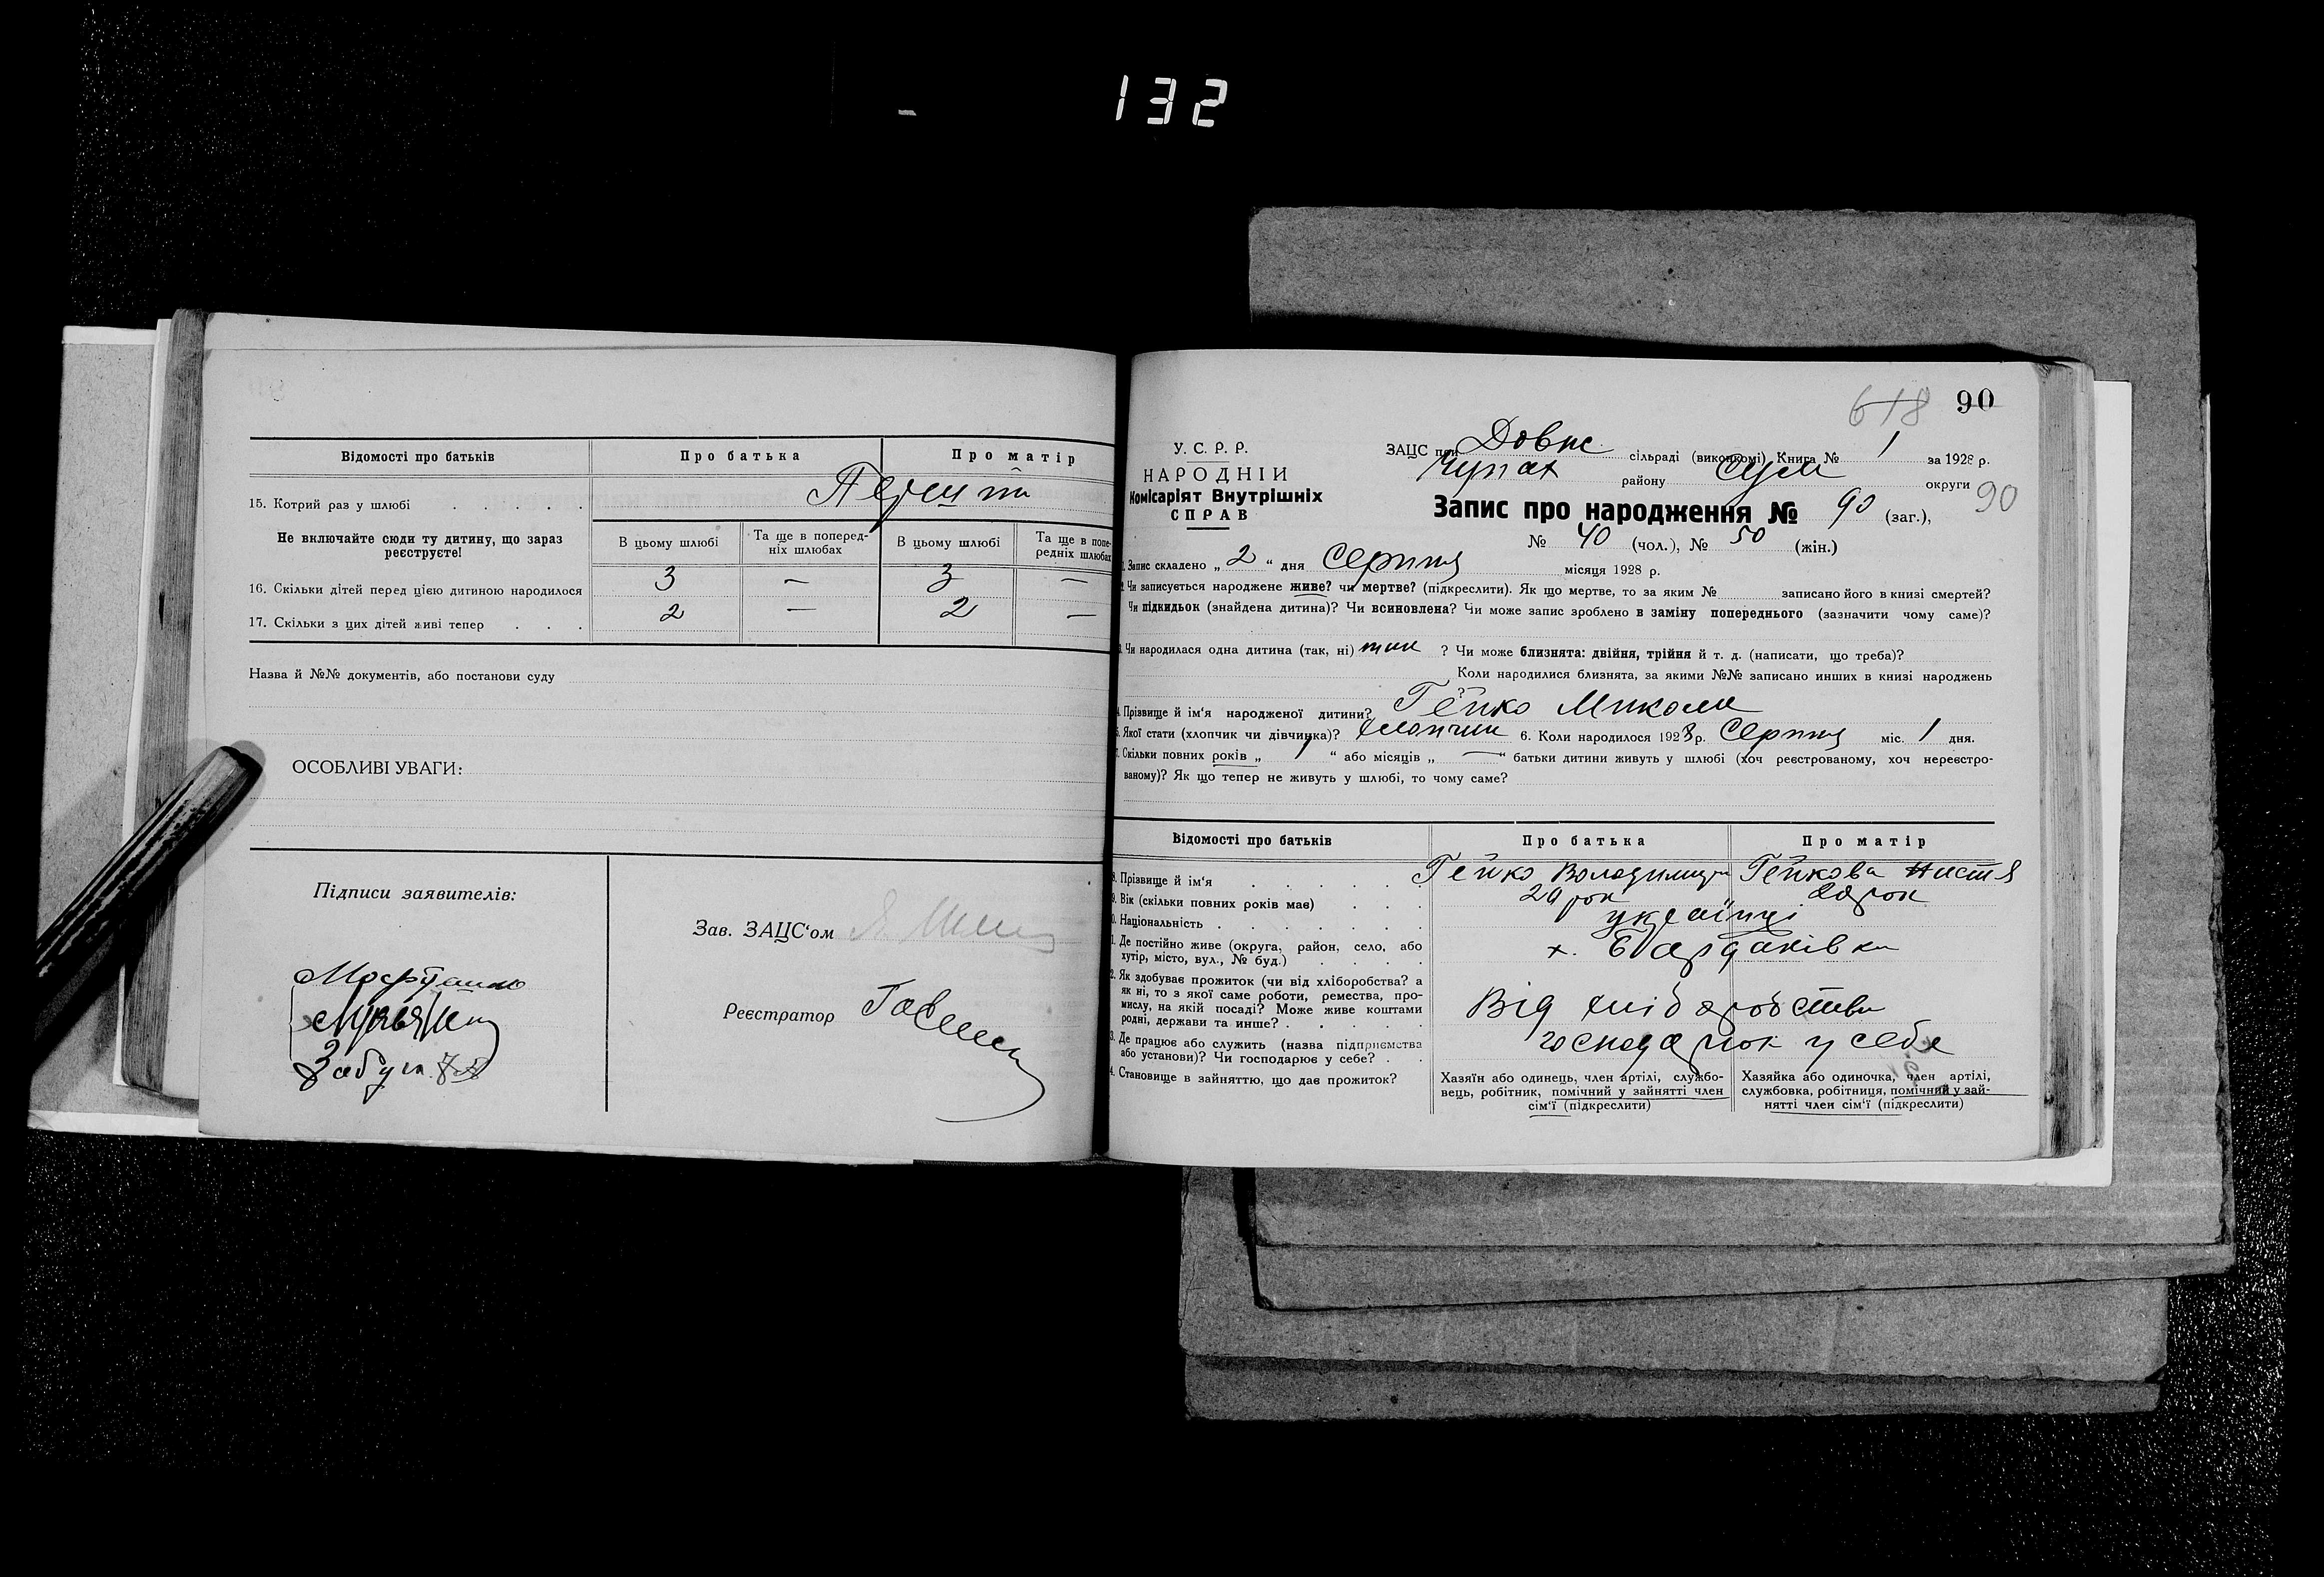 132
Відомості про батьків
Про батька
Про матір
15. Котрий раз у шлюбі
Перший
Не включайте сюди ту дитину, що зараз реєструєте!
В цьому шлюбі
Та ще в поперед-
ніх шлюбах
В цьому шлюбі
Та ще в попе-
редніх шлюбах
16. Скільки дітей перед цією дитиною народилося
3 — 3 —
17. Скільки з цих дітей живі тепер
2 — 2 —
Назва й №№ документів, або постанови суду
ОСОБЛИВІ УВАГИ:
Підписи заявителів:
Зав. ЗАЦС'ом
Реєстратор
618 90
У. С. Р. Р.
НАРОДНІЙ
Комісаріят Внутрішніх
СПРАВ
ЗАЦС при Довже сільраді (виконкомі) Книга № 1 за 1928 р.
Чупах району Сум округи
90
Запис про народження № 90 (заг.),
№ 40 (чол.), № 50 (жін.)
1. Запис складено „ 2 “ дня Серпня місяця 1928 р.
2. Чи записується народжене живе? чи мертве? (підкреслити). Як що мертве, то за яким № записано його в книзі смертей?
Чи підкидьок (знайдена дитина)? Чи всиновлена? Чи може запис зроблено в заміну попереднього (зазначити чому саме)?
3. Чи народилася одна дитина (так, ні) так ? Чи може близнята: двійня, трійня й т. д. (написати, що треба)?
Коли народилися близнята, за якими №№ записано инших в книзі народжень
?
4. Прізвище й ім'я народженої дитини? Гейко Микола
5. Якої стати (хлопчик чи дівчинка)? Хлопчик 6. Коли народилося 1928 р. Серпня міс. 1 дня.
7. Скільки повних років „ “ або місяців „ — “ батьки дитини живуть у шлюбі (хоч реєстрованому, хоч нереєстро-
ваному)? Як що тепер не живуть у шлюбі, то чому саме?
Відомості про батьків
Про батька
Про матір
8. Прізвище й ім'я
Гейко Володимир
Гейкова Настя
9. Вік (скільки повних років має)
29 рок
рок
10. Національність
українці
11. Де постійно живе (округа, район, село, або
хутір, місто, вул., № буд.)
х. Бардаківка
12. Як здобуває прожиток (чи від хліборобства? а
як ні, то з якої саме роботи, ремества, про-
мислу, на якій посаді? Може живе коштами
родні, держави та инше?
Від хліборобства
13. Де працює або служить (назва підприємства
або установи)? Чи господарює у себе?
господарюк у себе
14. Становище в зайняттю, що дає прожиток?
Хазяїн або одинець, член артілі, службо-
вець, робітник, помічний у зайнятті член
сім'ї (підкреслити)
Хазяйка або одиночка, член артілі,
службовка, робітниця, помічний у зай-
нятті член сім'ї (підкреслити)